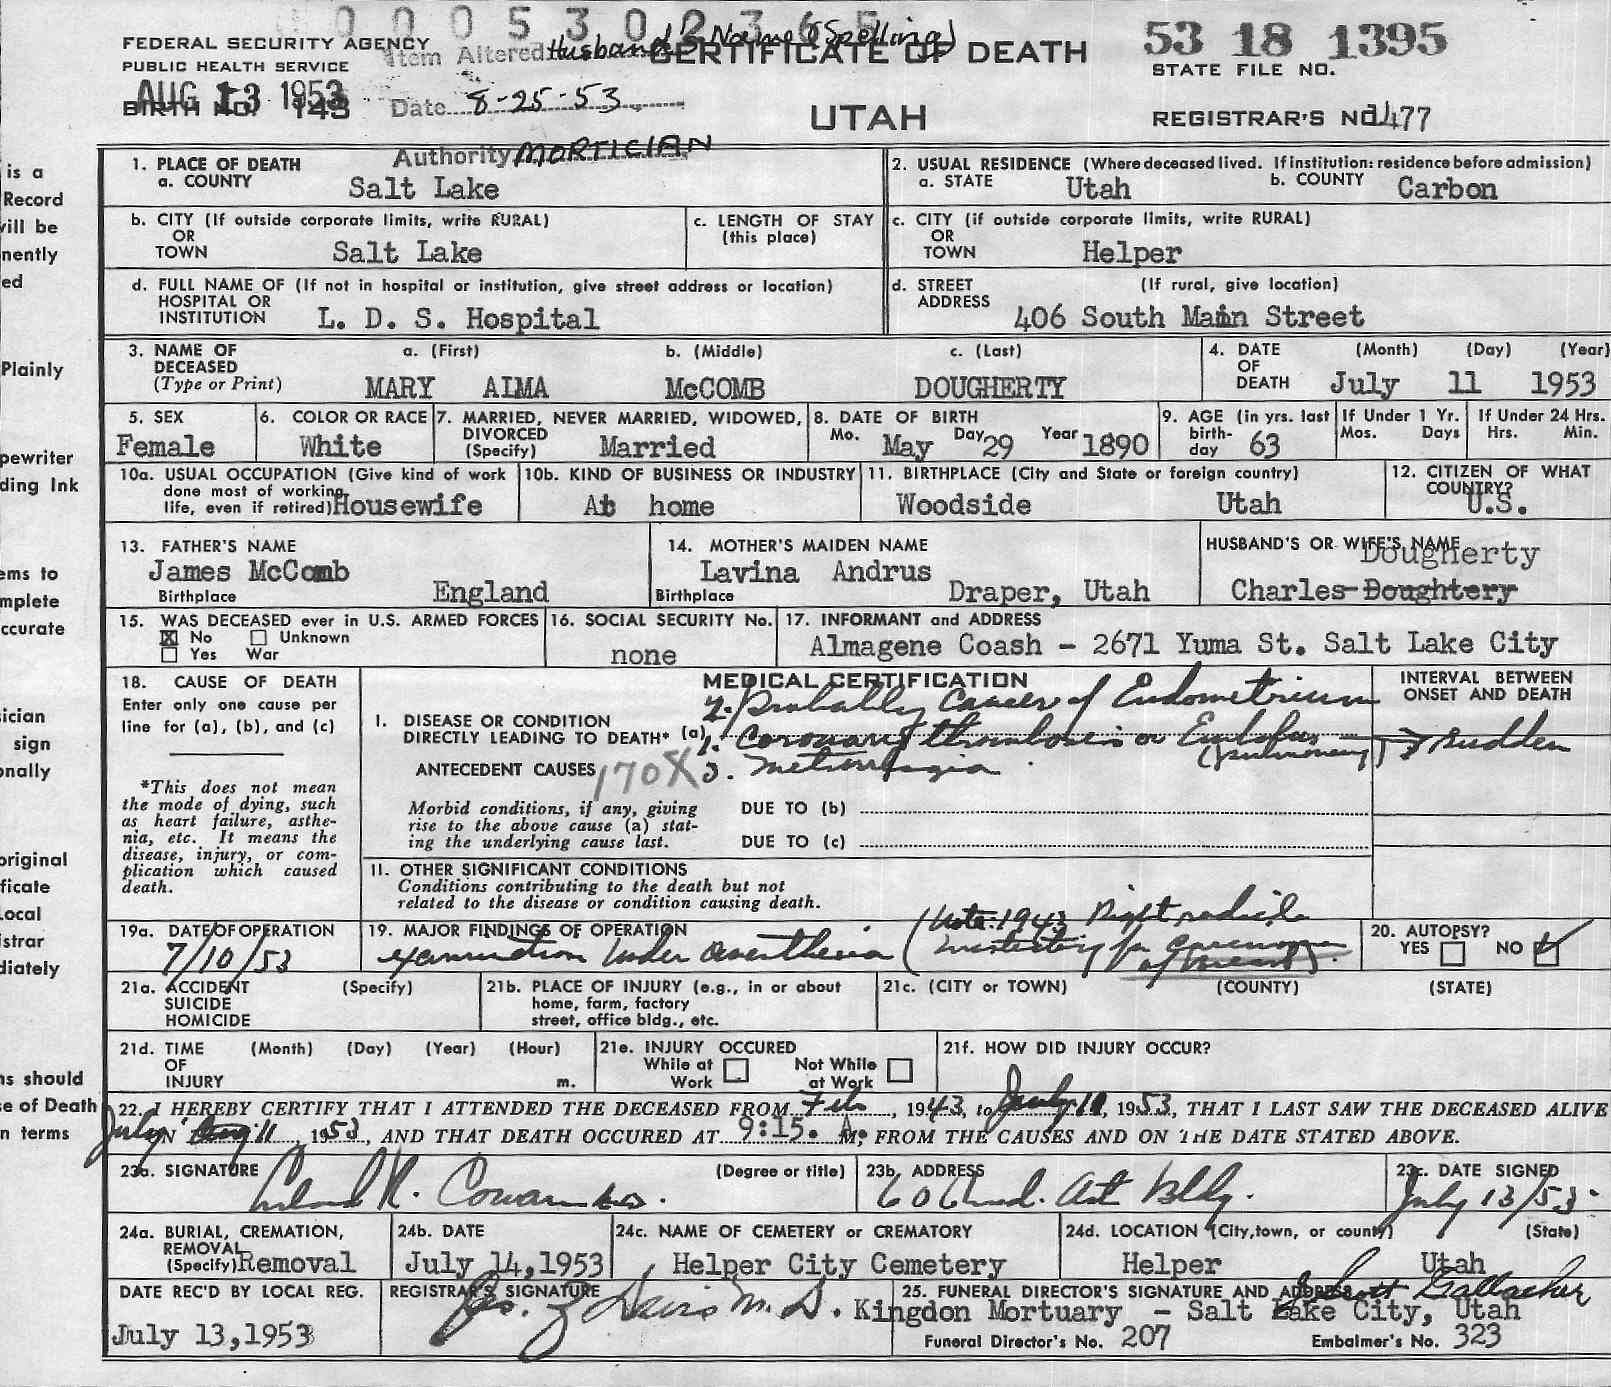 0 0 0 5 3 0 2 3 6 5
FEDERAL SECURITY AGENCY
PUBLIC HEALTH SERVICE
Item Altered Husband's Name (Spelling)
CERTIFICATE OF DEATH
53 18 1395
STATE FILE NO.
AUG 13 1953
BIRTH NO. 143
Date 8-25-53
UTAH
REGISTRAR'S NO. 1477
Authority MORTICIAN
1. PLACE OF DEATH
a. COUNTY Salt Lake
2. USUAL RESIDENCE (Where deceased lived. If institution: residence before admission)
a. STATE Utah b. COUNTY Carbon
b. CITY (If outside corporate limits, write RURAL)
OR
TOWN Salt Lake
c. LENGTH OF STAY
(this place)
c. CITY (if outside corporate limits, write RURAL)
OR
TOWN Helper
d. FULL NAME OF (If not in hospital or institution, give street address or location)
HOSPITAL OR
INSTITUTION L. D. S. Hospital
d. STREET (If rural, give location)
ADDRESS 406 South Main Street
3. NAME OF a. (First) b. (Middle) c. (Last)
DECEASED
(Type or Print) MARY ALMA McCOMB DOUGHERTY
4. DATE (Month) (Day) (Year)
OF
DEATH July 11 1953
5. SEX
Female
6. COLOR OR RACE
White
7. MARRIED, NEVER MARRIED, WIDOWED,
DIVORCED
(Specify) Married
8. DATE OF BIRTH
Mo. May Day 29 Year 1890
9. AGE (in yrs. last
birth-
day 63
If Under 1 Yr.
Mos. Days
If Under 24 Hrs.
Hrs. Min.
10a. USUAL OCCUPATION (Give kind of work
done most of working
life, even if retired) Housewife
10b. KIND OF BUSINESS OR INDUSTRY
At home
11. BIRTHPLACE (City and State or foreign country)
Woodside Utah
12. CITIZEN OF WHAT
COUNTRY?
U.S.
13. FATHER'S NAME
James McComb
Birthplace England
14. MOTHER'S MAIDEN NAME
Lavina Andrus
Birthplace Draper, Utah
HUSBAND'S OR WIFE'S NAME
Dougherty
Charles Doughtery
15. WAS DECEASED ever in U.S. ARMED FORCES
X No Unknown
Yes War
16. SOCIAL SECURITY No.
none
17. INFORMANT and ADDRESS
Almagene Coash - 2671 Yuma St. Salt Lake City
18. CAUSE OF DEATH
Enter only one cause per
line for (a), (b), and (c)
*This does not mean
the mode of dying, such
as heart failure, asthe-
nia, etc. It means the
disease, injury, or com-
plication which caused
death.
MEDICAL CERTIFICATION
INTERVAL BETWEEN
ONSET AND DEATH
2. Probably Cancer of Endometrium
I. DISEASE OR CONDITION
DIRECTLY LEADING TO DEATH* (a) 1. Coronary thrombosis or Embolus
(pulmonary) → Sudden
ANTECEDENT CAUSES 170X 3. Metrorrhagia
Morbid conditions, if any, giving
rise to the above cause (a) stat-
ing the underlying cause last.
DUE TO (b)
DUE TO (c)
11. OTHER SIGNIFICANT CONDITIONS
Conditions contributing to the death but not
related to the disease or condition causing death.
19a. DATE OF OPERATION
7/10/53
19. MAJOR FINDINGS OF OPERATION
(Note: 1943 Right radical
examination under anesthesia (mastectomy for carcinoma
of breast).
20. AUTOPSY?
YES NO ✓
21a. ACCIDENT (Specify)
SUICIDE
HOMICIDE
21b. PLACE OF INJURY (e.g., in or about
home, farm, factory
street, office bldg., etc.
21c. (CITY or TOWN) (COUNTY) (STATE)
21d. TIME (Month) (Day) (Year) (Hour)
OF
INJURY m.
21e. INJURY OCCURED
While at Not While
Work at Work
21f. HOW DID INJURY OCCUR?
22. I HEREBY CERTIFY THAT I ATTENDED THE DECEASED FROM Feb, 1943, to July 11, 1953, THAT I LAST SAW THE DECEASED ALIVE
ON July Aug 11, 1953, AND THAT DEATH OCCURED AT 9:15. A M; FROM THE CAUSES AND ON THE DATE STATED ABOVE.
23a. SIGNATURE (Degree or title)
Leland R. Cowan M.D.
23b. ADDRESS
606 Med. Art Bldg.
23c. DATE SIGNED
July 13/53
24a. BURIAL, CREMATION,
REMOVAL
(Specify) Removal
24b. DATE
July 14, 1953
24c. NAME OF CEMETERY or CREMATORY
Helper City Cemetery
24d. LOCATION (City, town, or county) (State)
Helper Utah
DATE REC'D BY LOCAL REG.
July 13, 1953
REGISTRAR'S SIGNATURE
Davis M.D.
25. FUNERAL DIRECTOR'S SIGNATURE AND ADDRESS
Gallacher
Kingdon Mortuary - Salt Lake City, Utah
Funeral Director's No. 207 Embalmer's No. 323
is a
Record
will be
nently
ed
Plainly
pewriter
ding Ink
ems to
mplete
ccurate
ician
sign
onally
original
ficate
Local
istrar
diately
ns should
se of Death
n terms